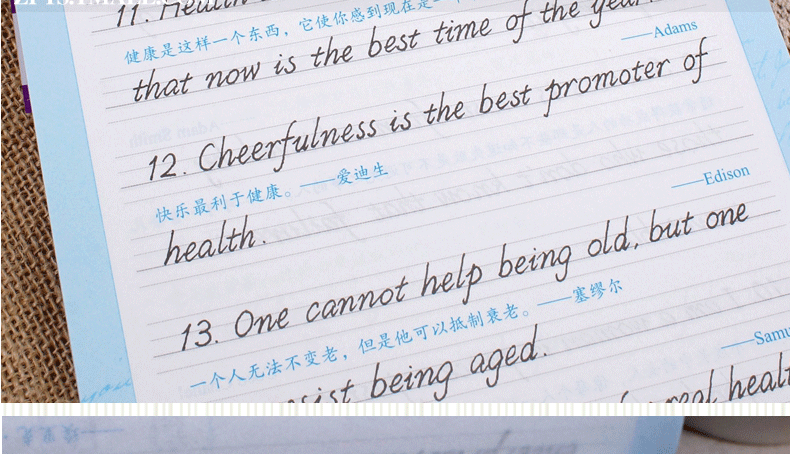 11. Health
健康是这样一个东西，它使你感到现在是一
that now is the best time of the year.
——Adams
12. Cheerfulness is the best promoter of
快乐最利于健康。——爱迪生
——Edison
health.
13. One cannot help being old, but one
一个人无法不变老，但是他可以抵制衰老。——塞缪尔
being aged.
real